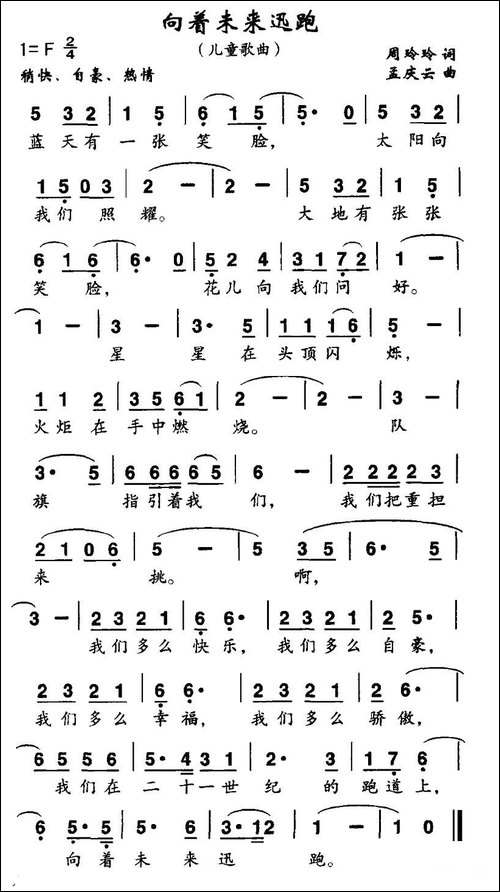 向着未来迅跑
(儿童歌曲)
1=F 2/4
周玲玲 词
稍快、自豪、热情
孟庆云 曲
5 3 2 | 1 5 | 6 1 5 | 5· 0 | 5 3 2 |
蓝 天 有 一 张 笑 脸, 太 阳 向
1 5 0 3 | 2 − | 2 − | 5 3 2 | 1 5 |
我 们 照 耀。 大 地 有 张 张
6 1 6 | 6· 0 | 5 2 4 | 3 1 7 2 | 1 − |
笑 脸, 花 儿 向 我 们 问 好。
1 − | 3 − | 3· 5 | 1 1 1 6 | 5 − |
星 星 在 头 顶 闪 烁,
1 1 2 | 3 5 6 1 | 2 − | 2 − | 3 − |
火 炬 在 手 中 燃 烧。 队
3· 5 | 6 6 6 6 5 | 6 − | 2 2 2 2 3 |
旗 指 引 着 我 们, 我 们 把 重 担
2 1 0 6 | 5 − | 5 3 5 | 6· 5 |
来 挑。 啊,
3 − | 2 3 2 1 | 5 5· | 2 3 2 1 | 2 5· |
我 们 多 么 快 乐, 我 们 多 么 自 豪,
2 3 2 1 | 6 6· | 2 3 2 1 | 2 6· |
我 们 多 么 幸 福, 我 们 多 么 骄 傲,
6 5 5 6 | 5· 4 3 1 | 2· 3 | 1 7 6 |
我 们 在 二 十 一 世 纪 的 跑 道 上,
6 5· 5 | 6 5 | 3· 1 2 | 1 − | 1 0 ‖
向 着 未 来 迅 跑。